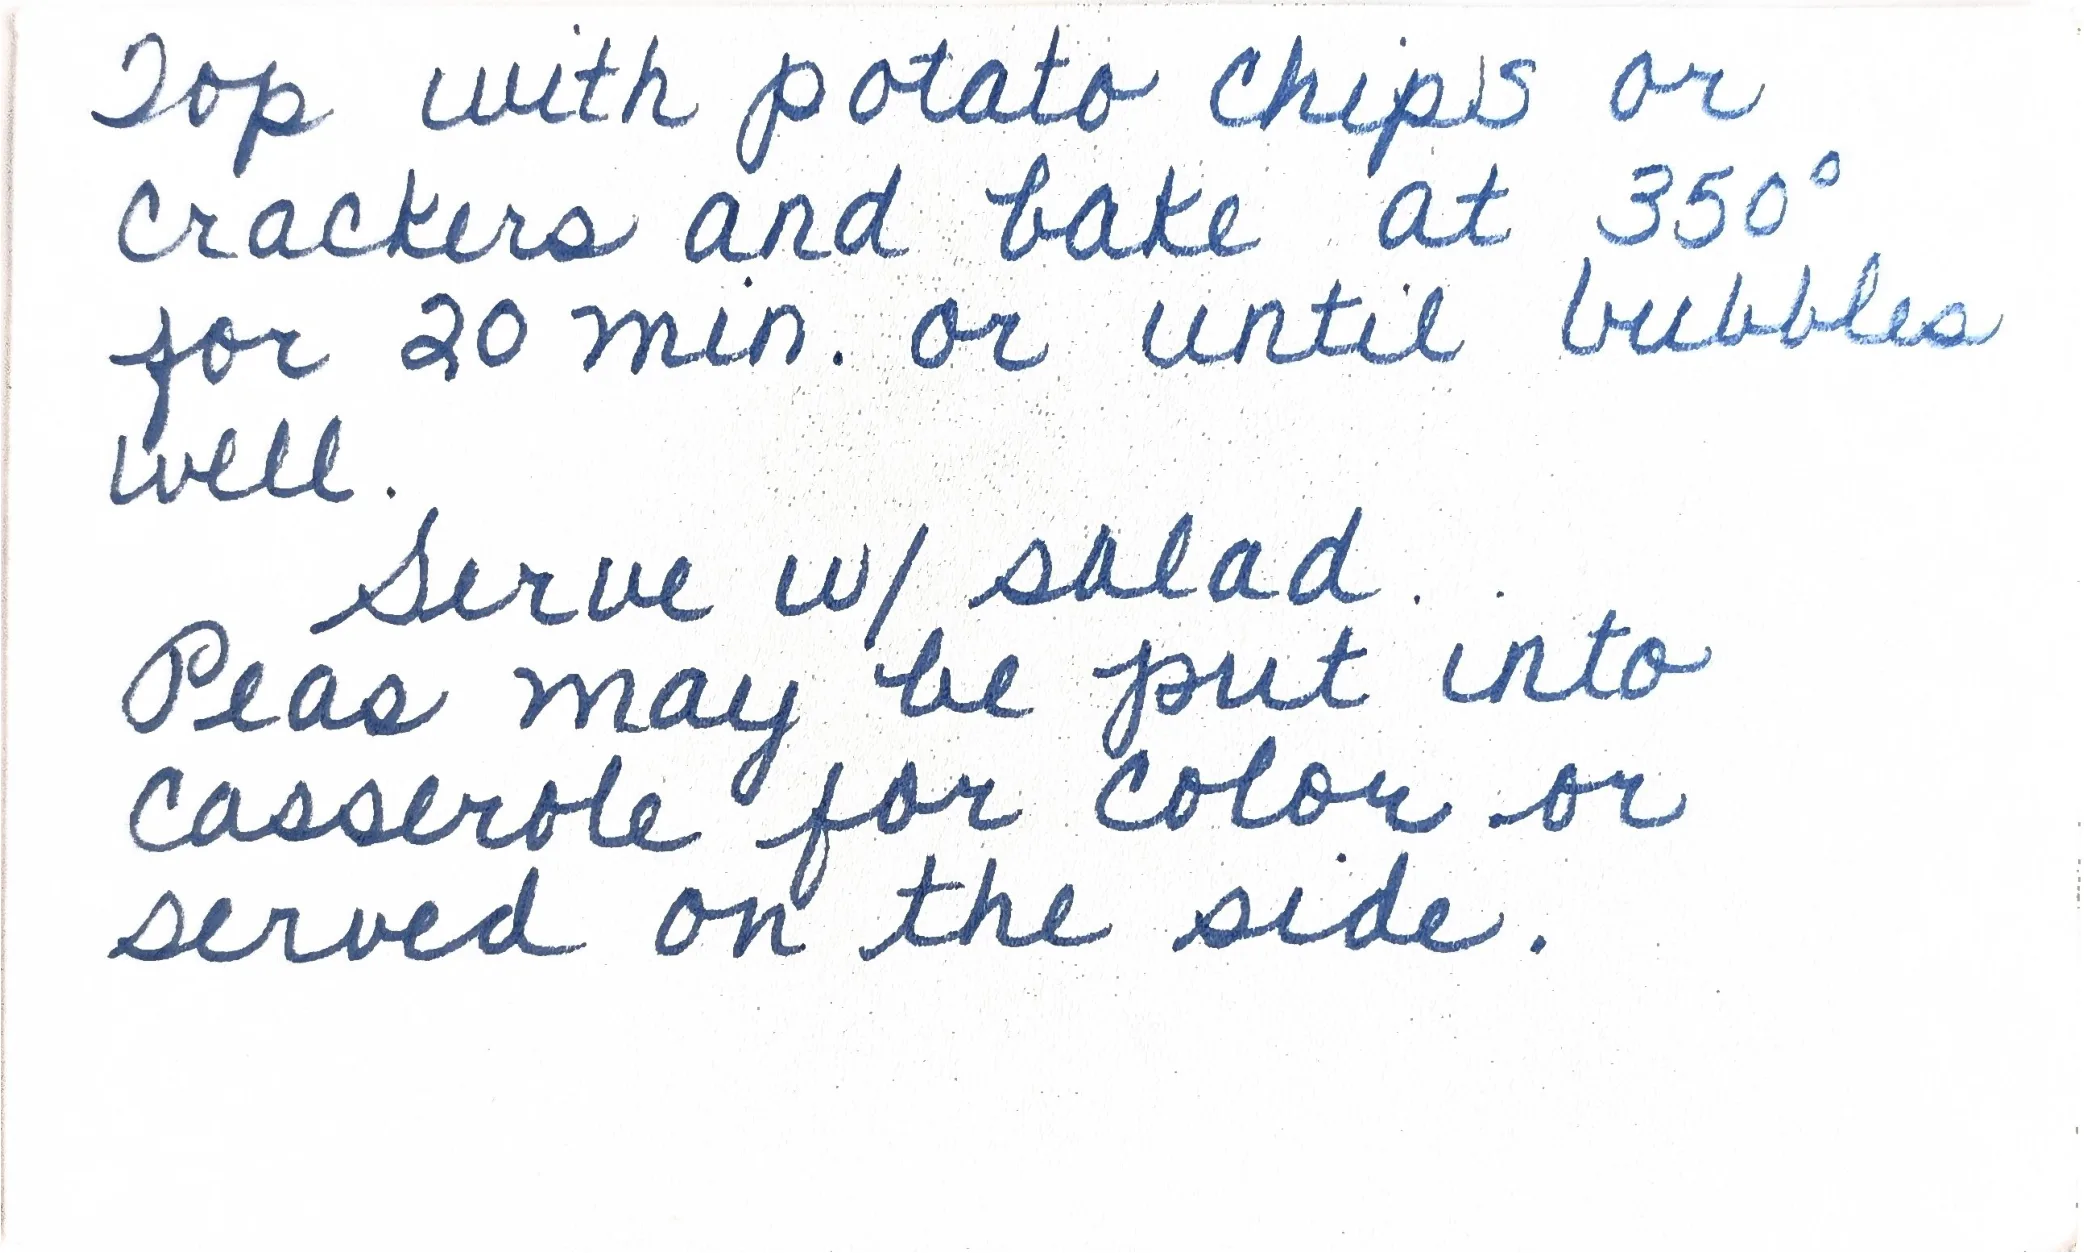 Top with potato chips or
crackers and bake at 350°
for 20 min. or until bubbles
well.
Serve w/ salad.
Peas may be put into
casserole for color or
served on the side.